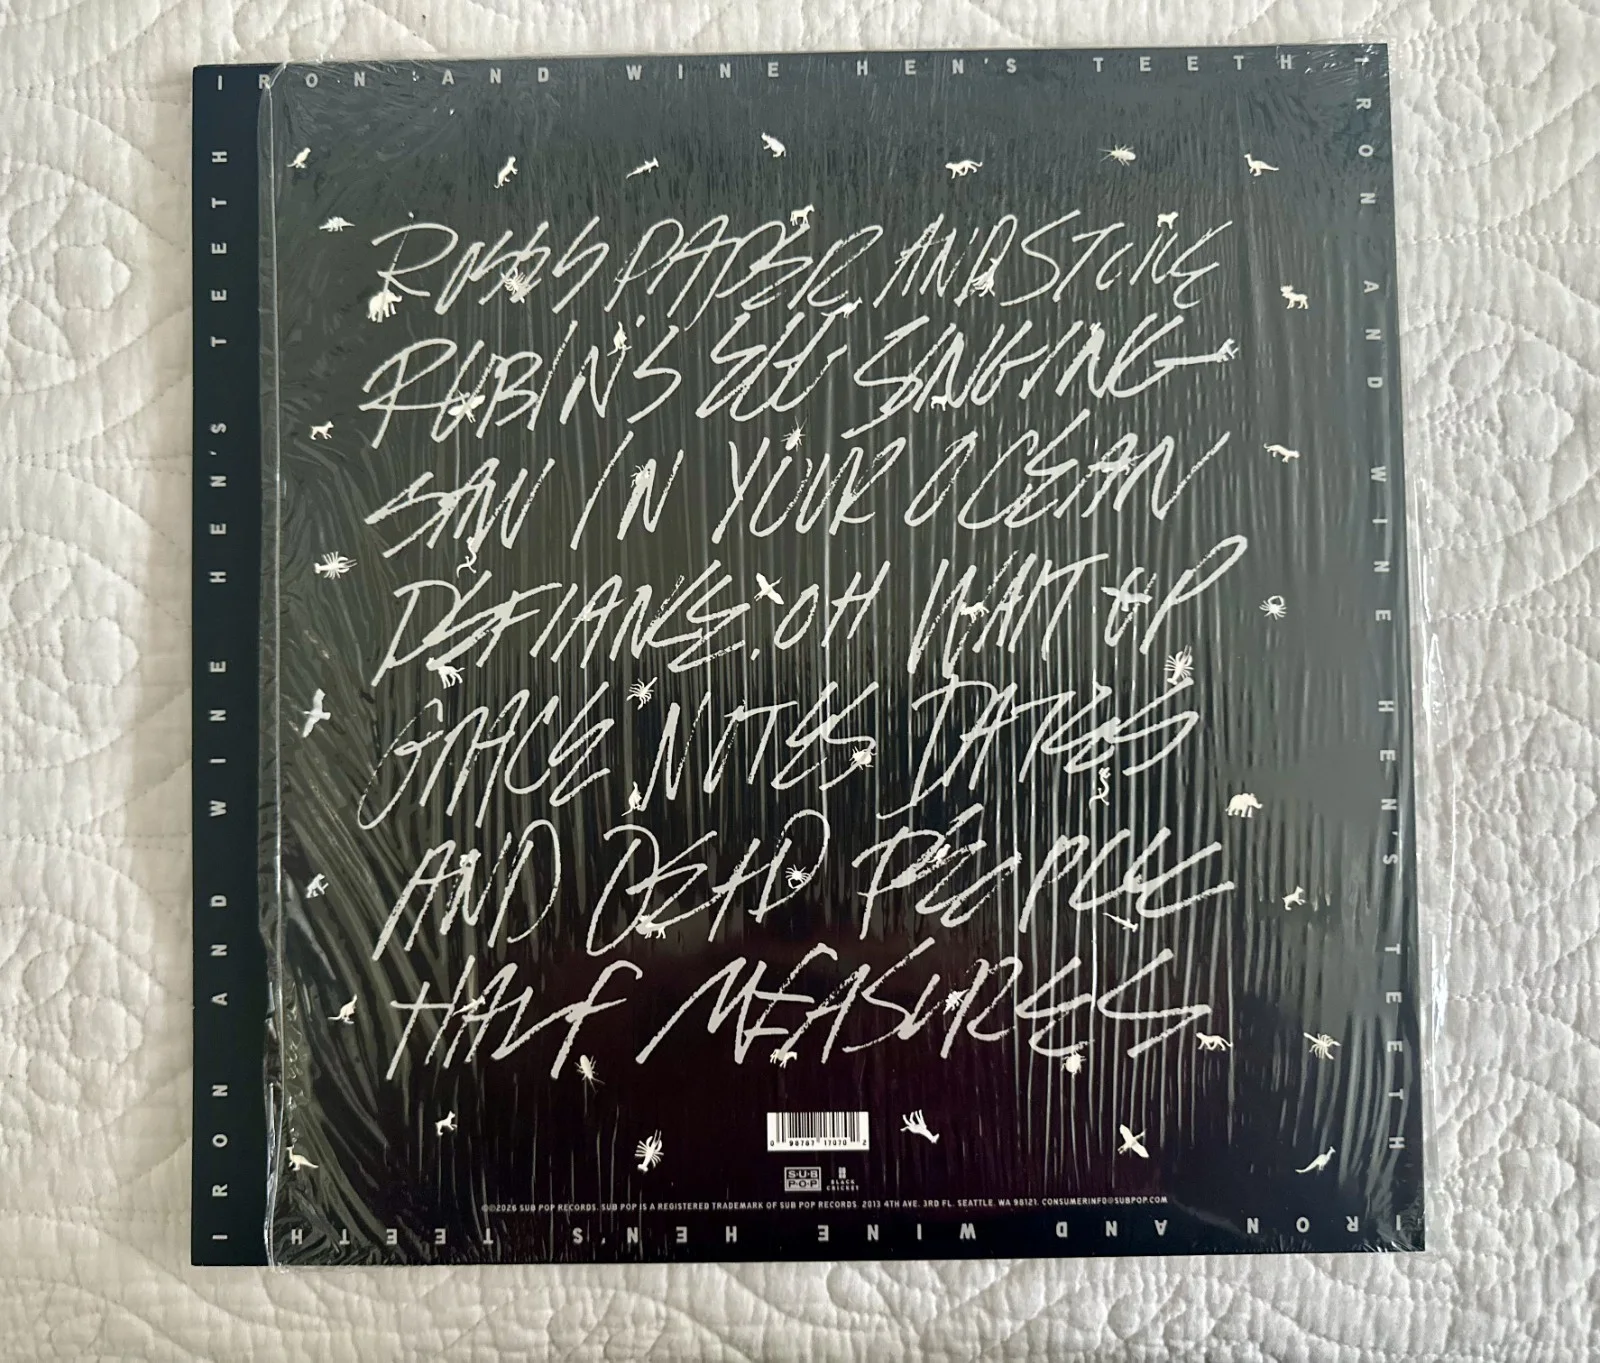 IRON AND WINE HEN'S TEETH
IRON AND WINE HEN'S TEETH
IRON AND WINE HEN'S TEETH
ROSES PAPER AND STONE
ROBIN'S EGG SINGING
SAW IN YOUR OCEAN
DEFIANCE, OH WAIT UP
GRACE NOTES DATES
AND DEAD PEOPLE
HALF MEASURES
0 98787 17070 2
SUB POP
BLACK CRICKET
℗©2026 SUB POP RECORDS. SUB POP IS A REGISTERED TRADEMARK OF SUB POP RECORDS. 2013 4TH AVE. 3RD FL. SEATTLE, WA 98121. CONSUMERINFO@SUBPOP.COM
IRON AND WINE HEN'S TEETH